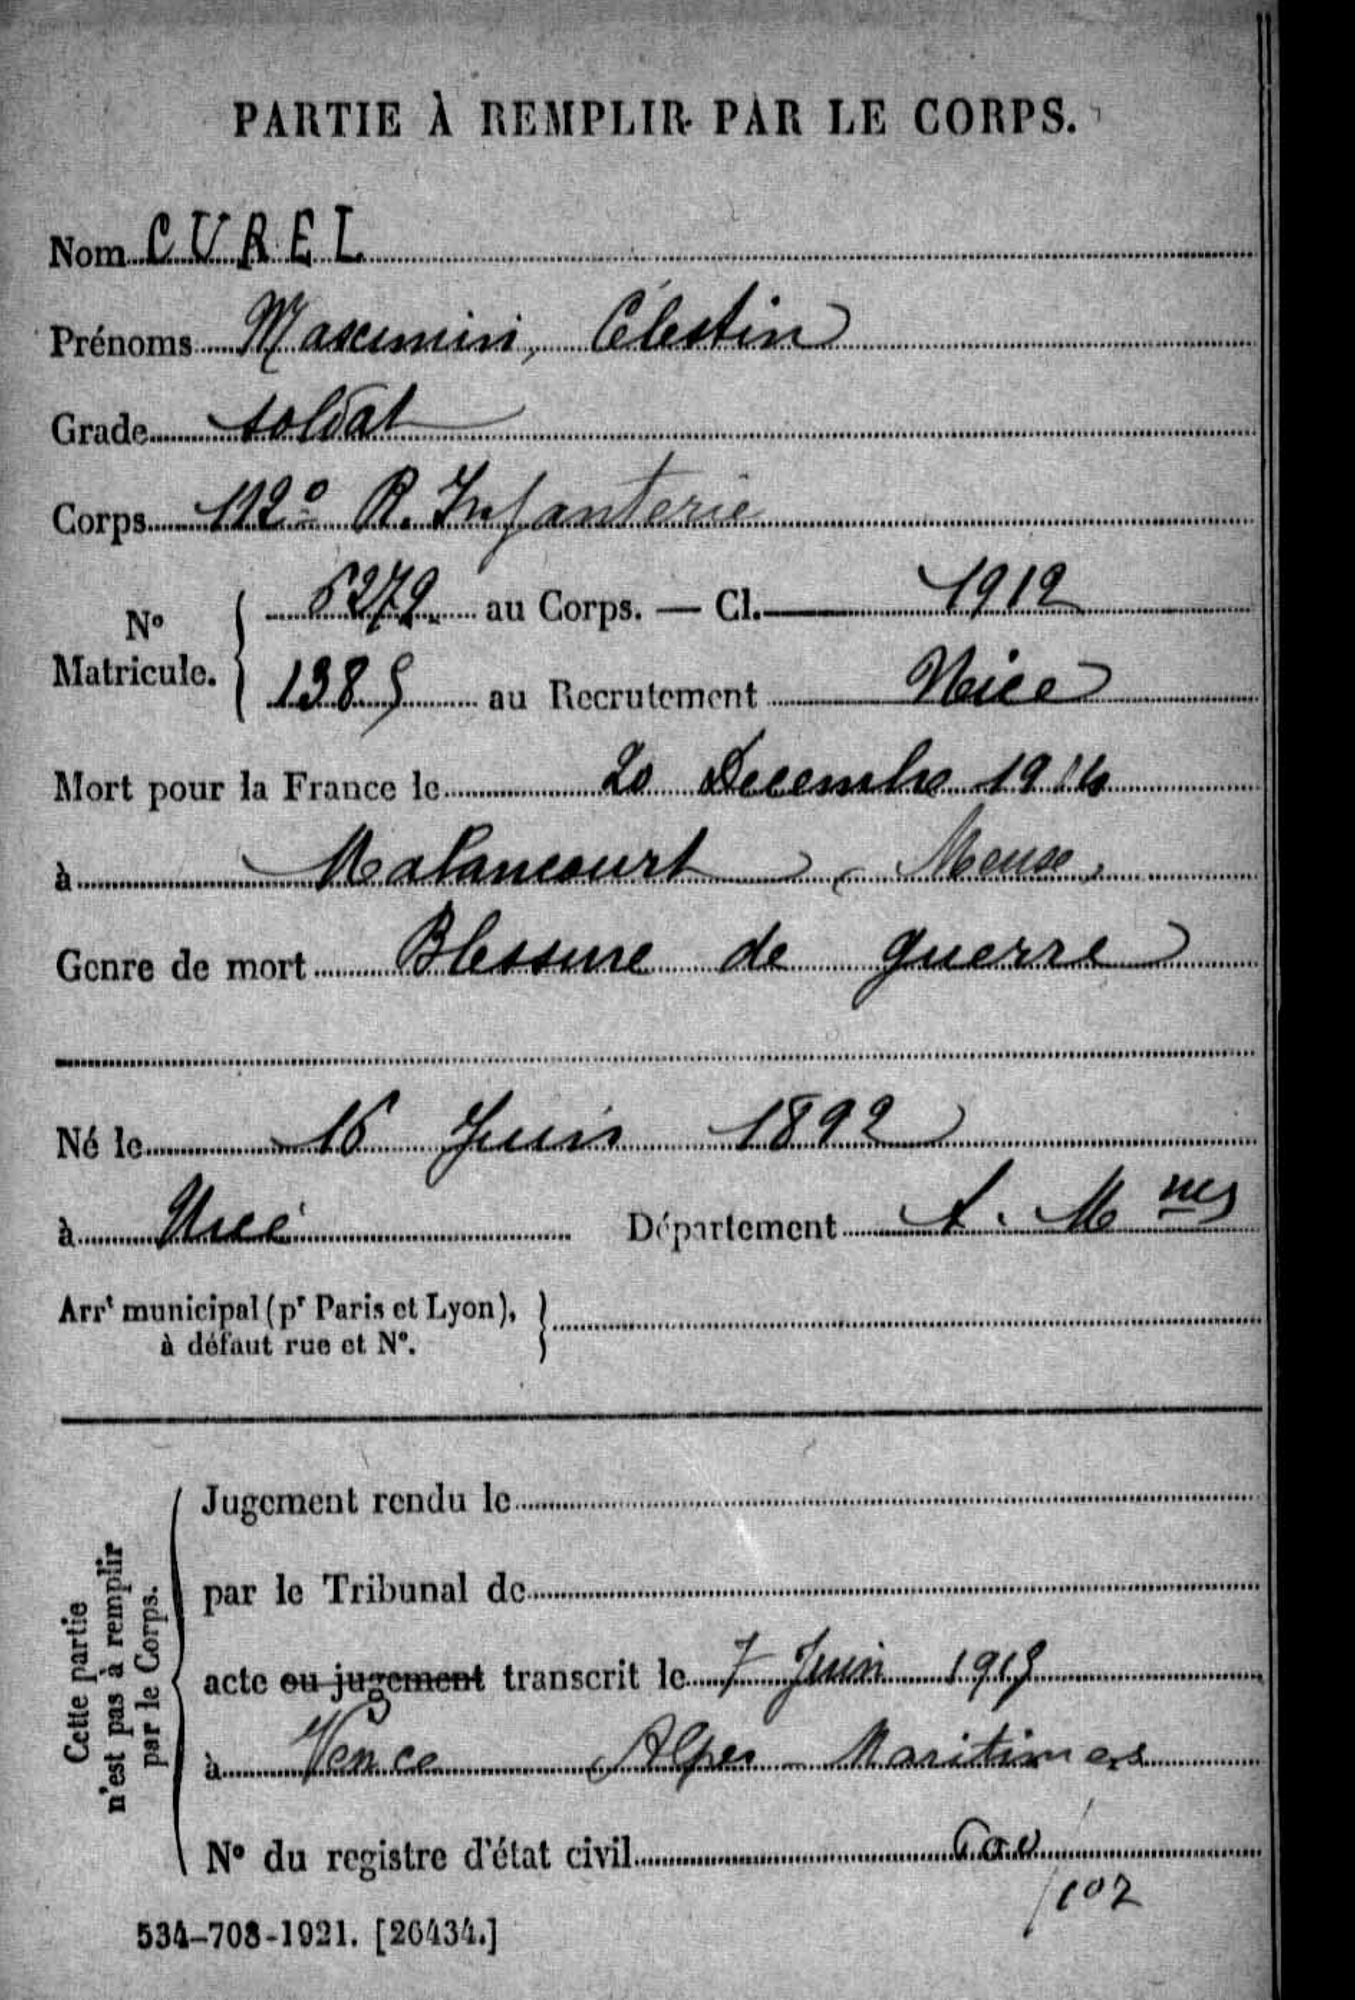 PARTIE À REMPLIR PAR LE CORPS.
Nom CUREL
Prénoms Maximin, Célestin
Grade soldat
Corps 112e R. Infanterie
N° Matricule. { 6279. au Corps. — Cl. 1912
1385 au Recrutement Nice
Mort pour la France le 20 Decembre 1914
à Malancourt, Meuse
Genre de mort Blessure de guerre
Né le 16 Juin 1892
à Département A. Mnes
Arrt municipal (pr Paris et Lyon),
à défaut rue et N°.
Cette partie
n'est pas à remplir
par le Corps.
Jugement rendu le
par le Tribunal de
acte ou jugement transcrit le 7 Juin 1915
à Vence Alpes-Maritimes
N° du registre d'état civil
534-708-1921. [26434.]